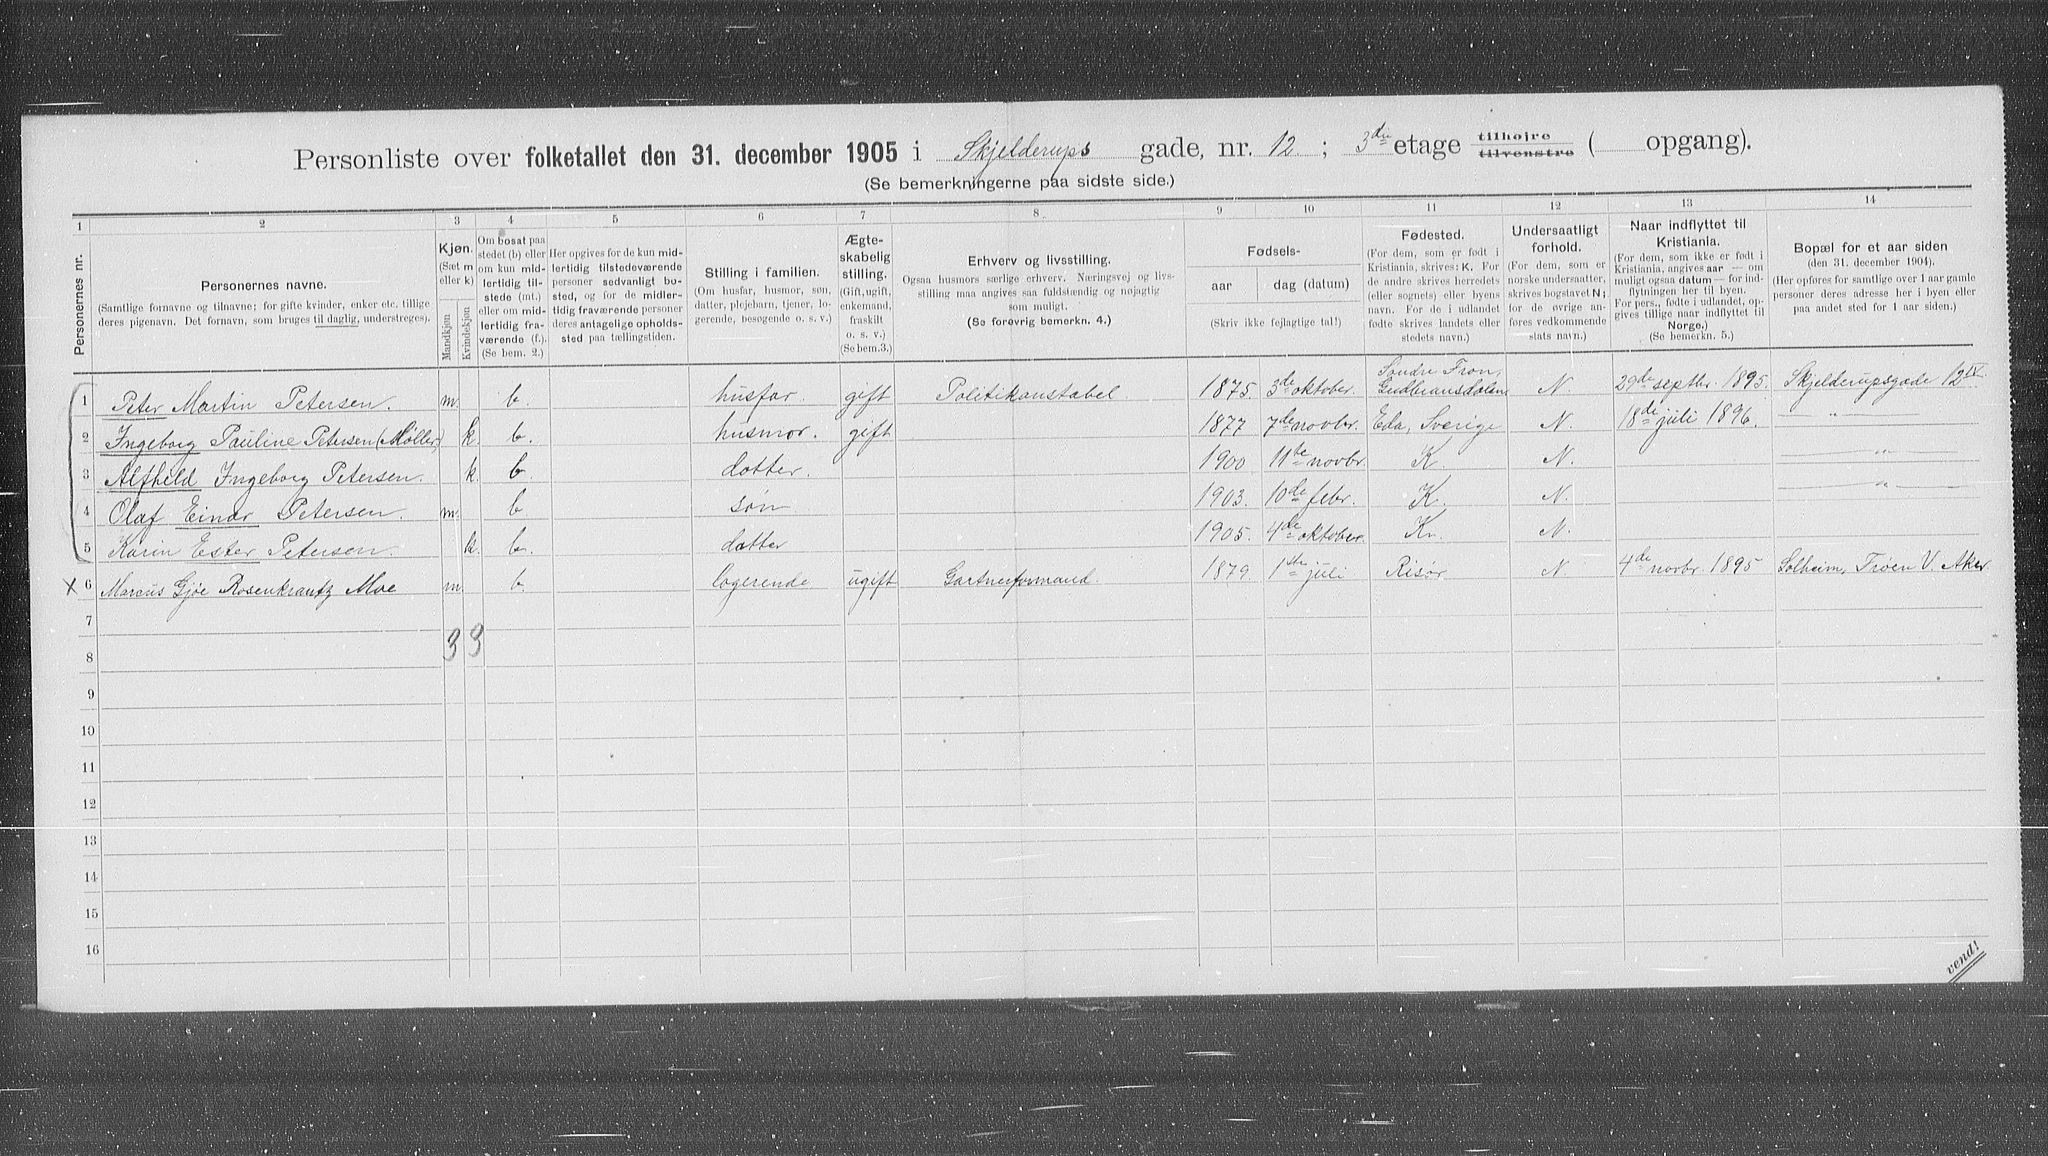 Personliste over folketallet den 31. december 1905 i Skjelderups gade, nr. 12 ; 3de etage tilhøjre tilvenstre ( opgang).
(Se bemerkningerne paa sidste side.)
1 2 3 4 5 6 7 8 9 10 11 12 13 14
Personernes nr.
Personernes navne.
(Samtlige fornavne og tilnavne; for gifte kvinder, enker etc. tillige
deres pigenavn. Det fornavn, som bruges til daglig, understreges).
Kjøn.
(Sæt m
eller k)
Mandkjøn
Kvindekjøn
Om bosat paa
stedet (b) eller
om kun mid-
lertidig til-
stede (mt.)
eller om mid-
lertidig fra-
værende (f.).
(Se bem. 2.)
Her opgives for de kun mid-
lertidig tilstedeværende
personer sedvanligt bo-
sted, og for de midler-
tidig fraværende personer
deres antagelige opholds-
sted paa tællingstiden.
Stilling i familien.
(Om husfar, husmor, søn,
datter, plejebarn, tjener, lo-
gerende, besøgende o. s. v.)
Ægte-
skabelig
stilling.
(Gift, ugift,
enkemand,
fraskilt
o. s. v.)
(Se bem.3.)
Erhverv og livsstilling.
Ogsaa husmors særlige erhverv. Næringsvej og livs-
stilling maa angives saa fuldstændig og nøjagtig
som muligt.
(Se forøvrig bemerkn. 4.)
Fødsels-
aar dag (datum)
(Skriv ikke fejlagtige tal!)
Fødested.
(For dem, som er født i
Kristiania, skrives: K. For
de andre skrives herredets
(eller sognets) eller byens
navn. For de i udlandet
fødte skrives landets eller
stedets navn.)
Undersaatligt
forhold.
(For dem, som er
norske undersaatter,
skrives bogstavet N;
for de øvrige an-
føres vedkommende
stats navn.)
Naar indflyttet til
Kristiania.
(For dem, som ikke er født i
Kristiania, angives aar — om
muligt ogsaa datum — for ind-
flytningen her til byen.
For pers., fødte i udlandet, op-
gives tillige naar indflyttet til
Norge.)
(Se bemerkn. 5.)
Bopæl for et aar siden
(den 31. december 1904).
(Her opføres for samtlige over 1 aar gamle
personer deres adresse her i byen eller
paa andet sted for 1 aar siden.)
1 Peter Martin Petersen. m. b. husfar. gift Politikonstabel. 1875. 3de oktober. Søndre Fron, Gudbransdalen N. 29de septbr. 1895. Skjelderupsgade 12 IV.
2 Ingeborg Pauline Petersen (Møller) k. b. husmor. gift 1877 7de novbr. Eda, Sverige N. 18de juli 1896. — " —
3 Alfhild Ingeborg Petersen. k. b. datter. 1900 11te novbr. K. N. — " —
4 Olaf Einar Petersen. m. b søn 1903. 10de febr. K. N. — " —
5 Karin Ester Petersen. k. b. datter 1905. 4de oktober. K. N.
x 6 Marcus Gjøe Rosenkrantz Moe m. b. logerende ugift Gartnerformand. 1879. 1ste juli Risør N 4de novbr. 1895 Solheim, Trøen V. Aker
7
3 3
8
9
10
11
12
13
14
15
16
vend!